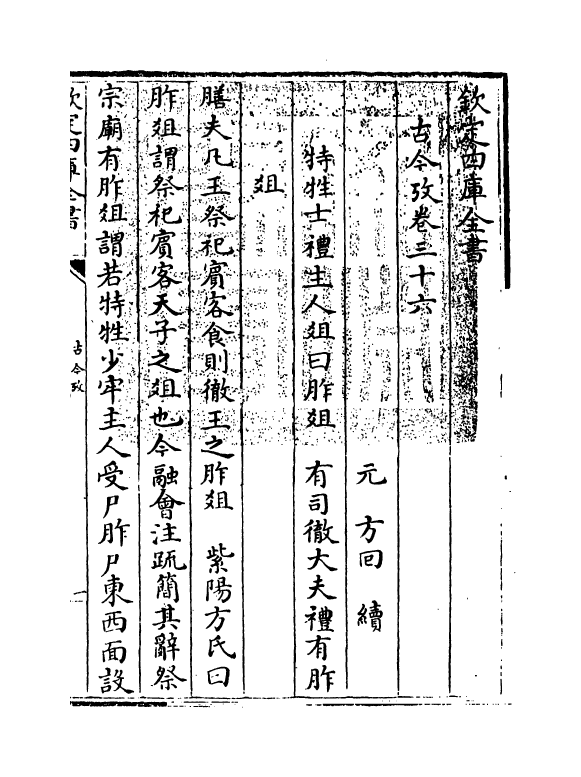 欽定四庫全書
古今攷卷三十六
元　方回　續
特牲士禮主人俎曰胙俎　有司徹大夫禮有胙
俎
膳夫凡王祭祀賓客食則徹王之胙俎　紫陽方氏曰
胙俎謂祭祀賓客天子之俎也今融會注䟽簡其辭祭
宗廟有胙俎謂若特牲少牢主人受尸胙尸東西面設
欽定四庫全書
古今攷
一